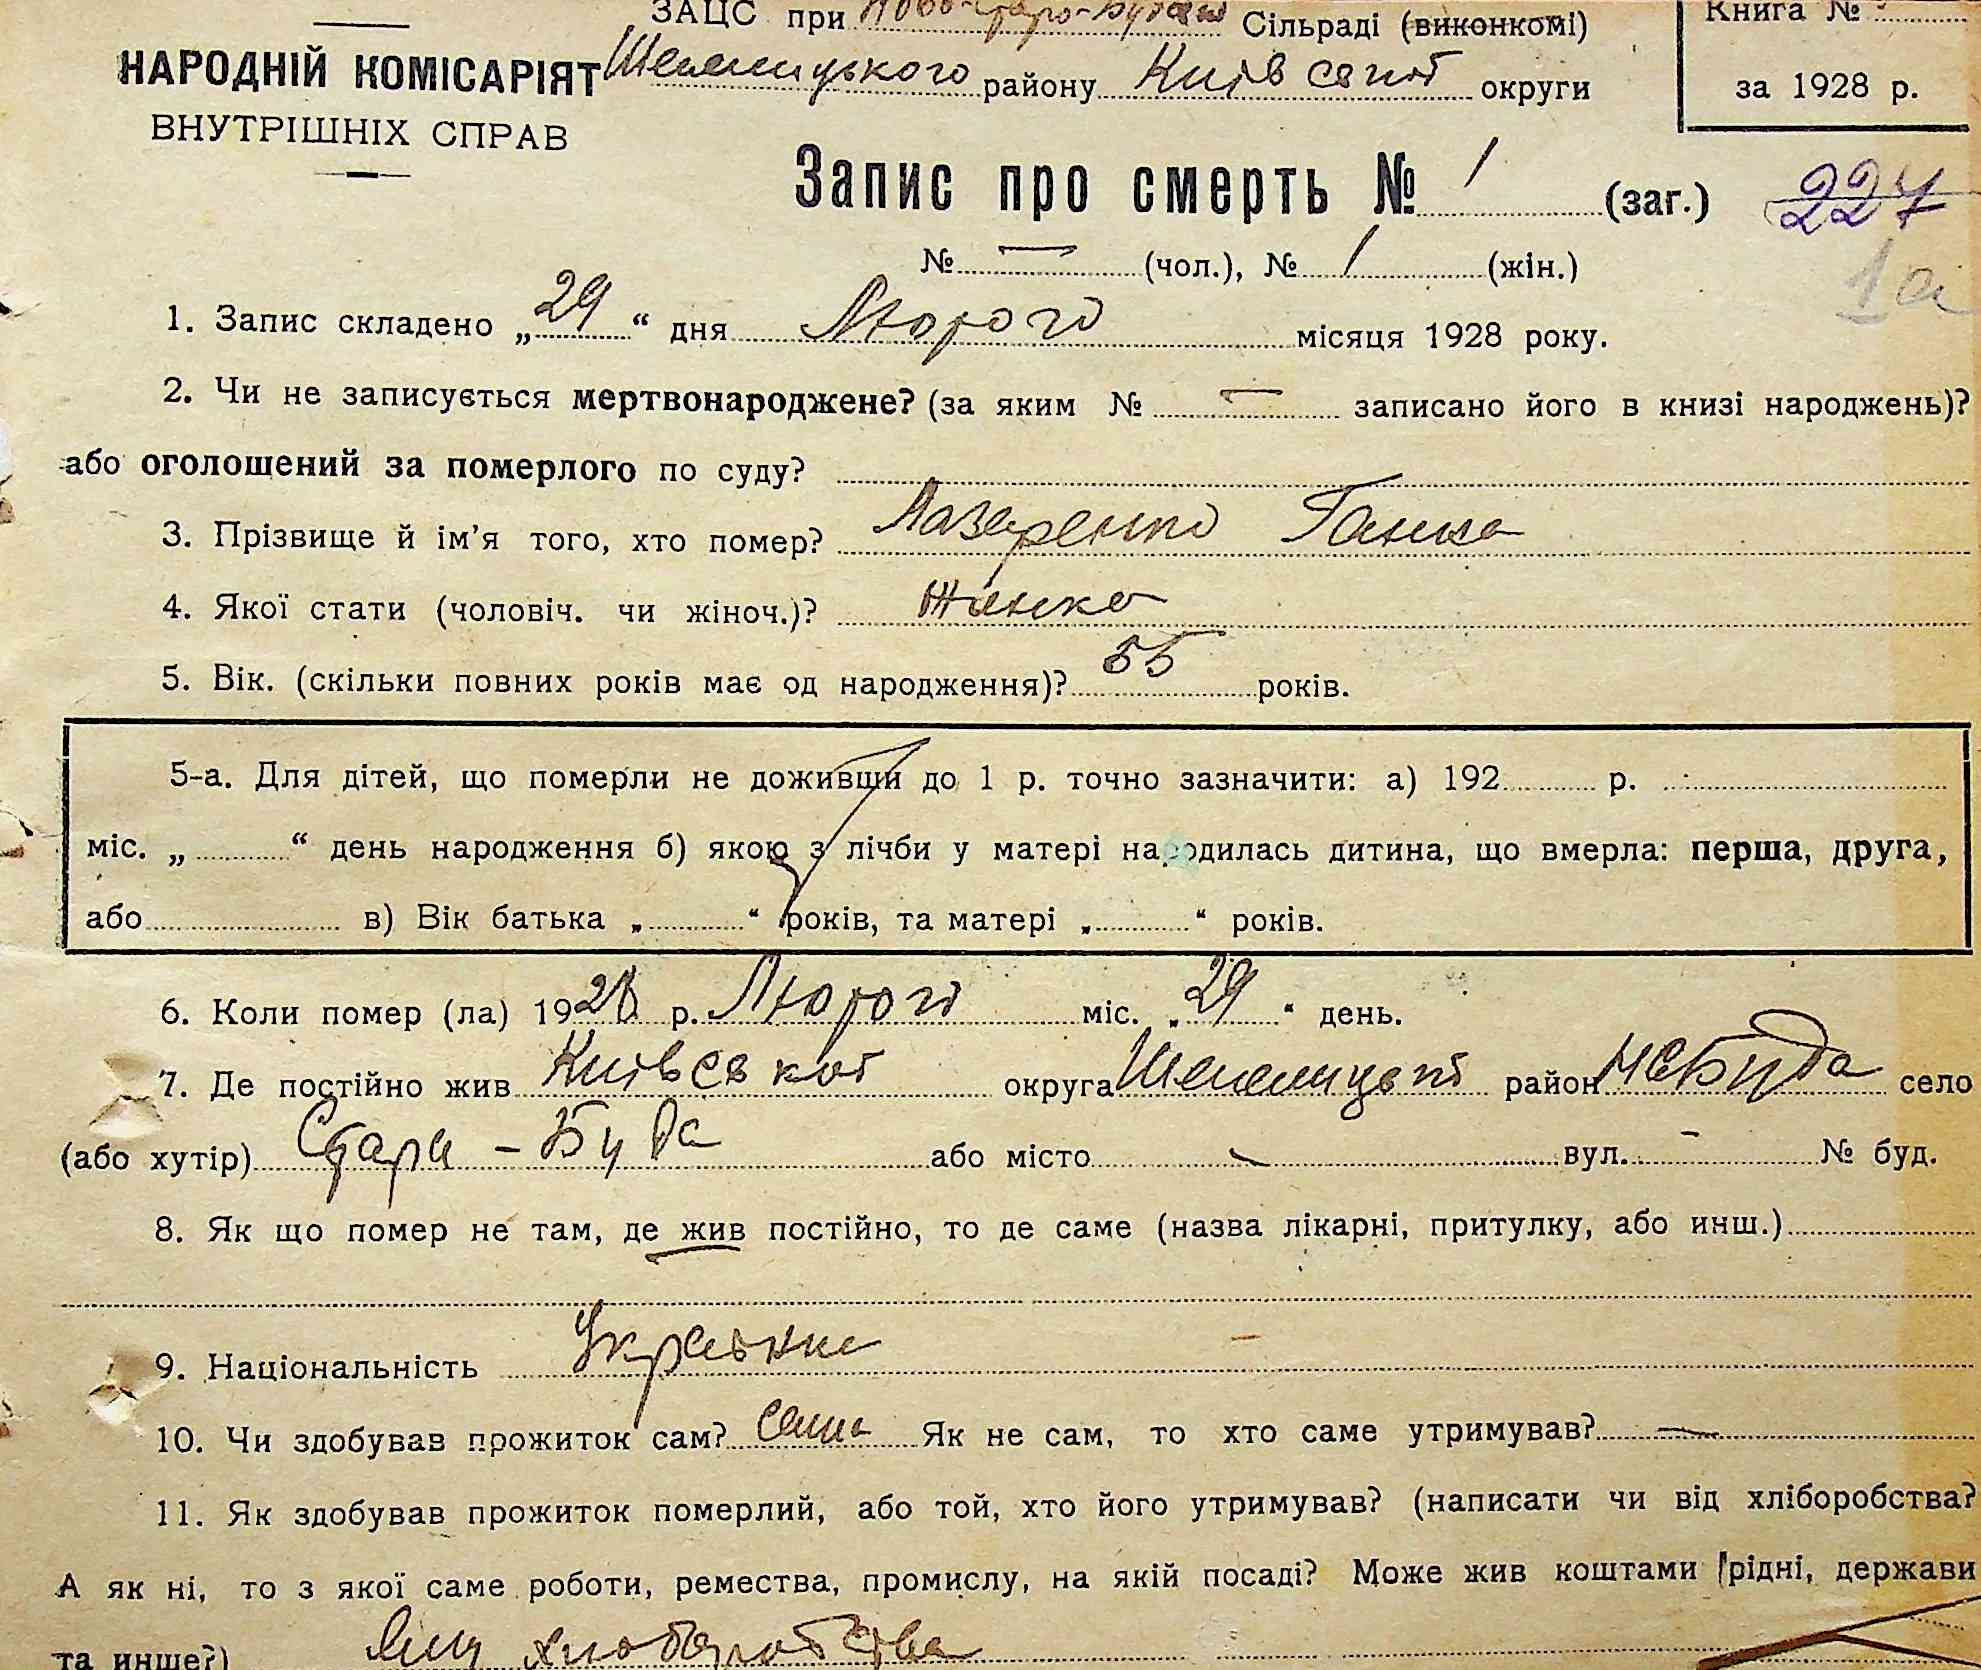 ЗАЦС при Ново-Старо-Будськ Сільраді (виконкомі)
Книга №
НАРОДНІЙ КОМІСАРІЯТ
ВНУТРІШНІХ СПРАВ
району Київської округи
за 1928 р.
Запис про смерть № 1 (заг.) 227
№ — (чол.), № 1 (жін.)
1а
1. Запис складено „29“ дня Лютого місяця 1928 року.
2. Чи не записується мертвонароджене? (за яким № — записано його в книзі народжень)?
або оголошений за померлого по суду?
3. Прізвище й ім'я того, хто помер? Лазаренко Ганна
4. Якої стати (чоловіч. чи жіноч.)? Жінка
5. Вік. (скільки повних років має од народження)? 55 років.
5-а. Для дітей, що померли не доживши до 1 р. точно зазначити: а) 192 р.
міс. „ “ день народження б) якою з лічби у матері народилась дитина, що вмерла: перша, друга,
або в) Вік батька „ “ років, та матері „ “ років.
6. Коли помер (ла) 1928 р. Лютого міс. „29“ день.
7. Де постійно жив Київської округа район НСБуда село
(або хутір) Стара - Буда або місто — вул. - № буд.
8. Як що помер не там, де жив постійно, то де саме (назва лікарні, притулку, або инш.)
9. Національність Українка
10. Чи здобував прожиток сам? Сама Як не сам, то хто саме утримував? —
11. Як здобував прожиток померлий, або той, хто його утримував? (написати чи від хліборобства?
А як ні, то з якої саме роботи, ремества, промислу, на якій посаді? Може жив коштами рідні, держави
та инше?) хліборобства